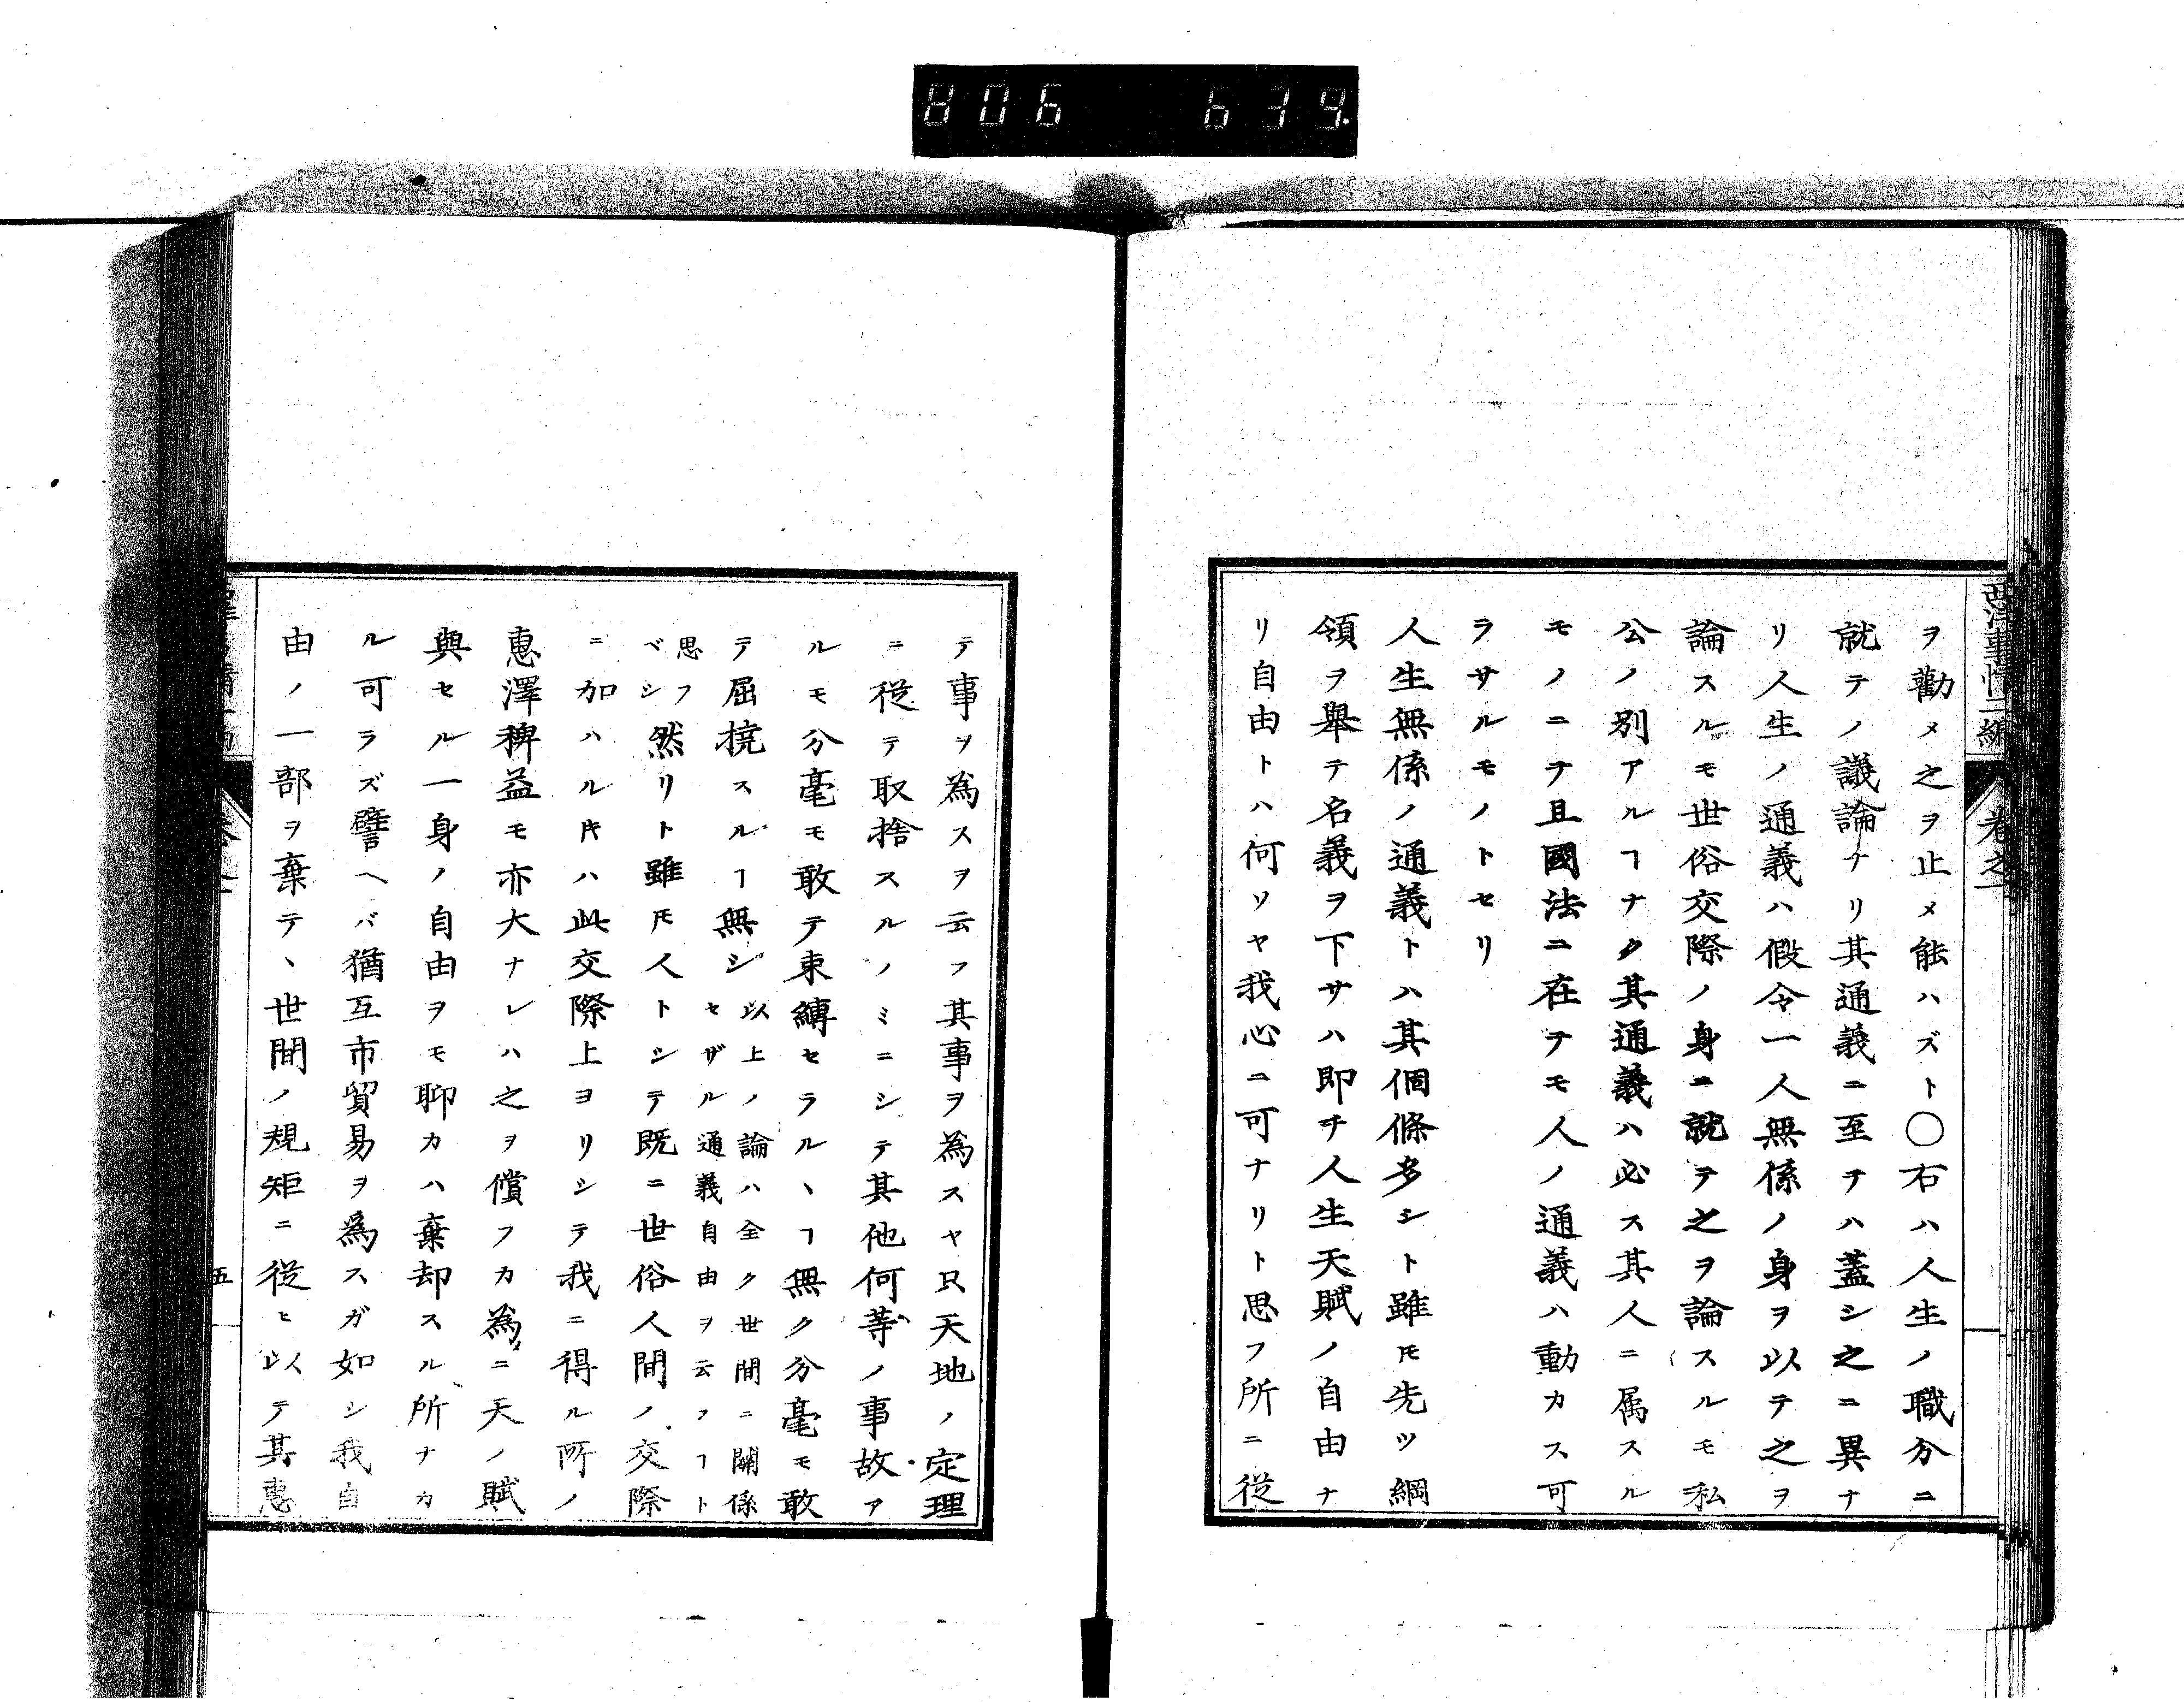 806 639.
西洋事情二編 卷之一
ヲ勸メ之ヲ止メ能ハズト○右ハ人生ノ職分ニ
就テノ議論ナリ其通義ニ至テハ蓋シ之ニ異ナ
リ人生ノ通義ハ假令一人無係ノ身ヲ以テ之ヲ
論スルモ世俗交際ノ身ニ就テ之ヲ論スルモ私
公ノ別アルヿナク其通義ハ必ス其人ニ属スル
モノニテ且國法ニ在テモ人ノ通義ハ動カス可
ラサルモノトセリ
人生無係ノ通義トハ其個條多シト雖𪜈先ツ綱
領ヲ舉テ名義ヲ下サハ即チ人生天賦ノ自由ナ
リ自由トハ何ソヤ我心ニ可ナリト思フ所ニ從
テ事ヲ為スヲ云フ其事ヲ為スヤ只天地ノ定理
ニ從テ取捨スルノミニシテ其他何等ノ事故ア
ルモ分毫モ敢テ束縛セラルヽヿ無ク分毫モ敢
テ屈撓スルヿ無シ以上ノ論ハ全ク世間ニ關係
セザル通義自由ヲ云フヿト
思フ
ベシ然リト雖𪜈人トシテ既ニ世俗人間ノ交際
ニ加ハルキハ此交際上ヨリシテ我ニ得ル所ノ
惠澤稗益モ亦大ナレハ之ヲ償フカ為ニ天ノ賦
與セル一身ノ自由ヲモ聊カハ棄却スル所ナカ
ル可ラズ譬ヘバ猶互市貿易ヲ爲スガ如シ我自
由ノ一部ヲ棄テヽ世間ノ規矩ニ從ヒ以テ其惠
五